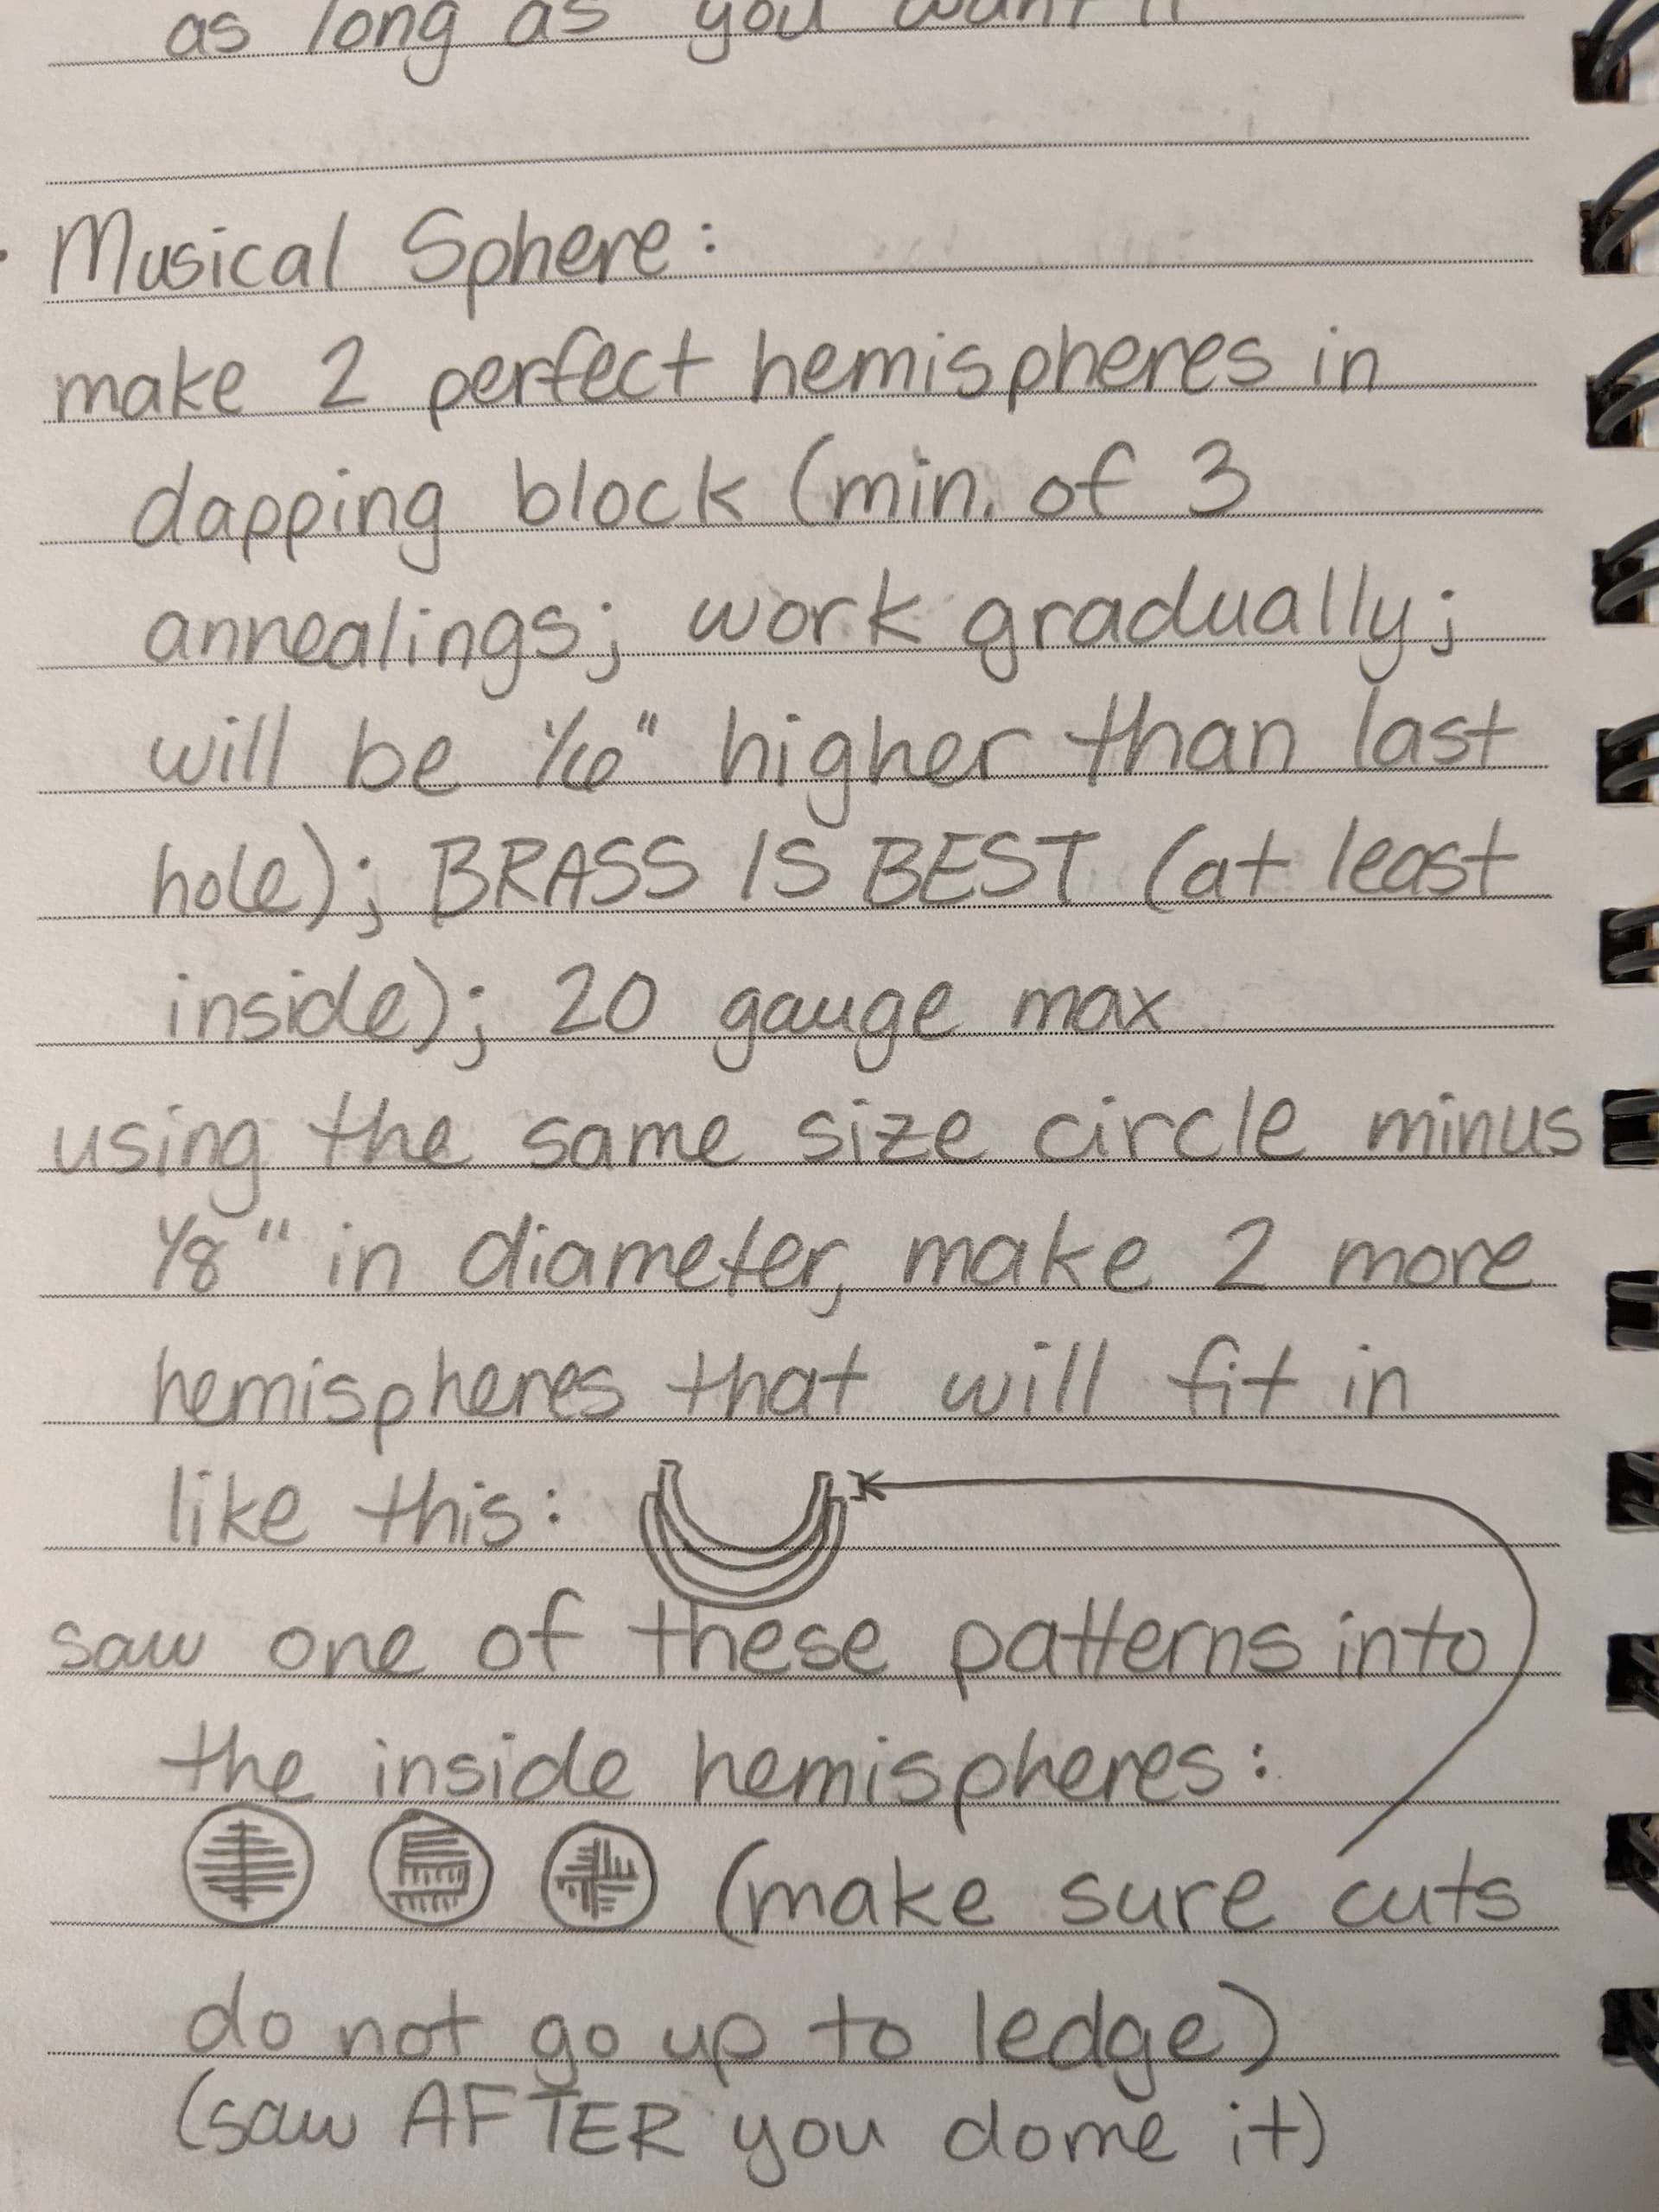 as long as you want it
• Musical Sphere:
make 2 perfect hemispheres in
dapping block (min. of 3
annealings; work gradually;
will be 1/16" higher than last
hole); BRASS IS BEST (at least
inside); 20 gauge max
using the same size circle minus
1/8" in diameter, make 2 more
hemispheres that will fit in
like this:
saw one of these patterns into
the inside hemispheres:
(make sure cuts
do not go up to ledge)
(saw AFTER you dome it)